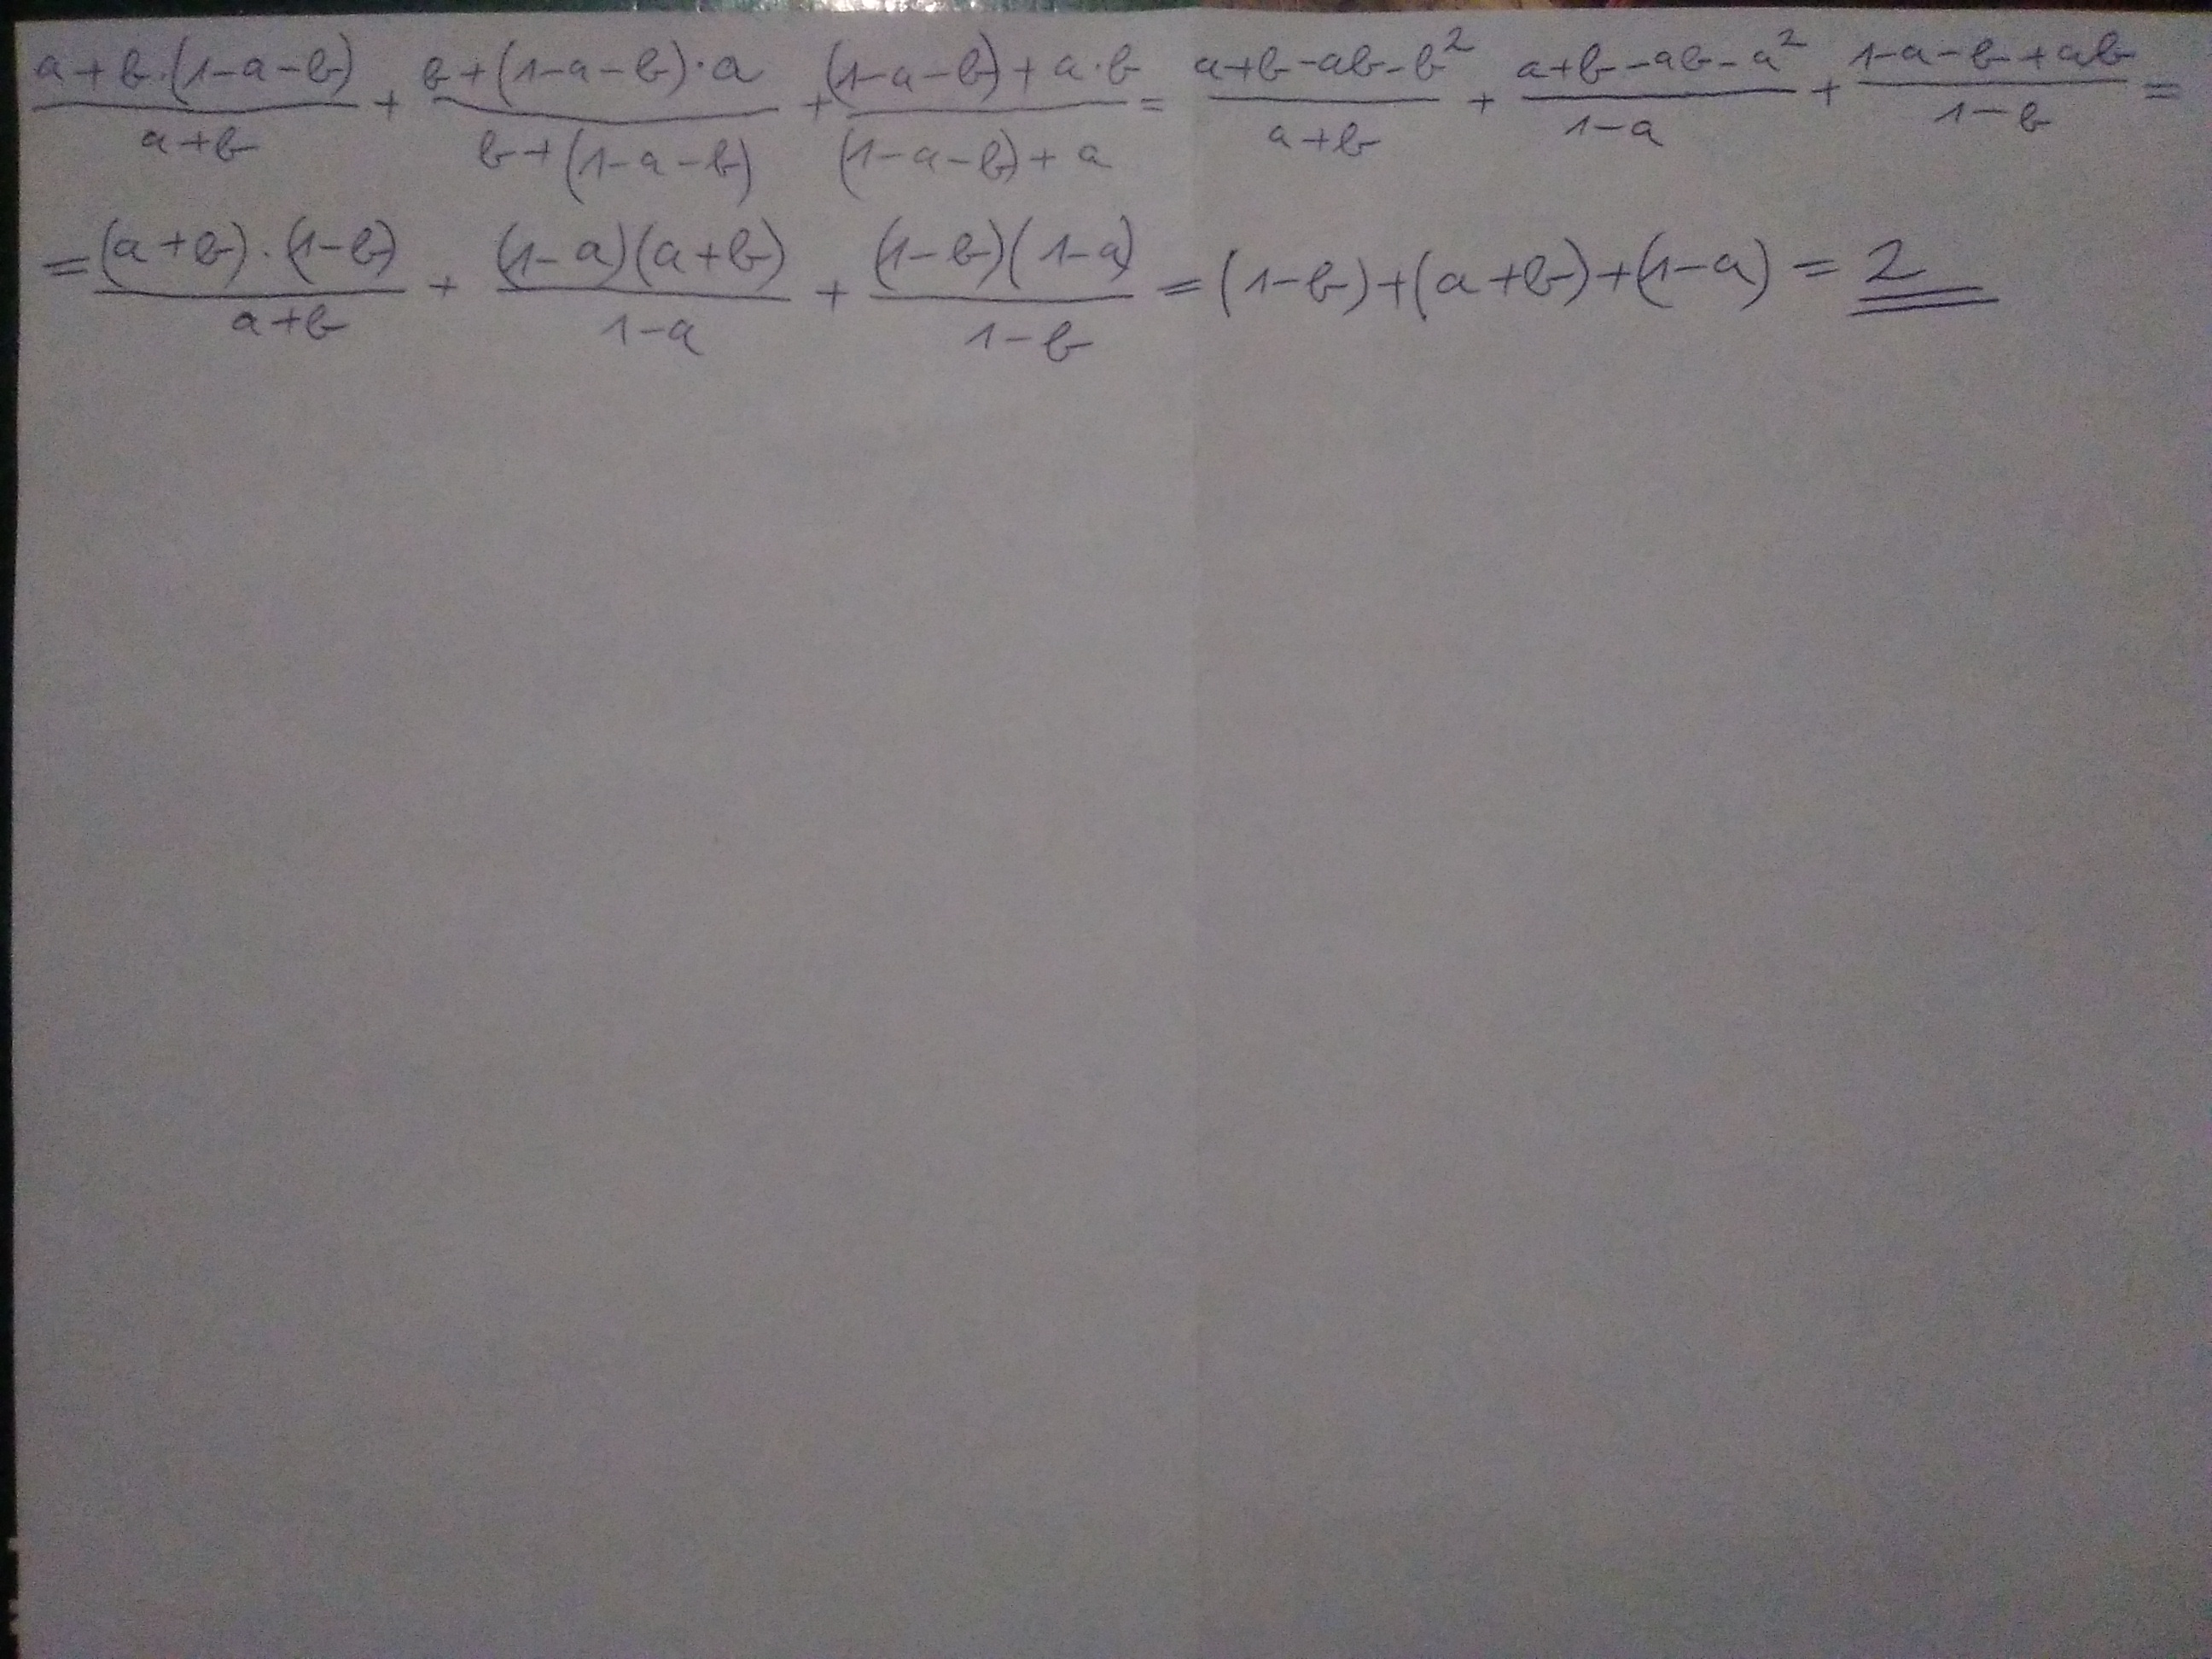 (a+b·(1-a-b))/(a+b) + (b+(1-a-b)·a)/(b+(1-a-b)) + ((1-a-b)+a·b)/((1-a-b)+a) = (a+b-ab-b²)/(a+b) + (a+b-ab-a²)/(1-a) + (1-a-b+ab)/(1-b) =
= ((a+b)·(1-b))/(a+b) + ((1-a)(a+b))/(1-a) + ((1-b)(1-a))/(1-b) = (1-b)+(a+b)+(1-a) = 2